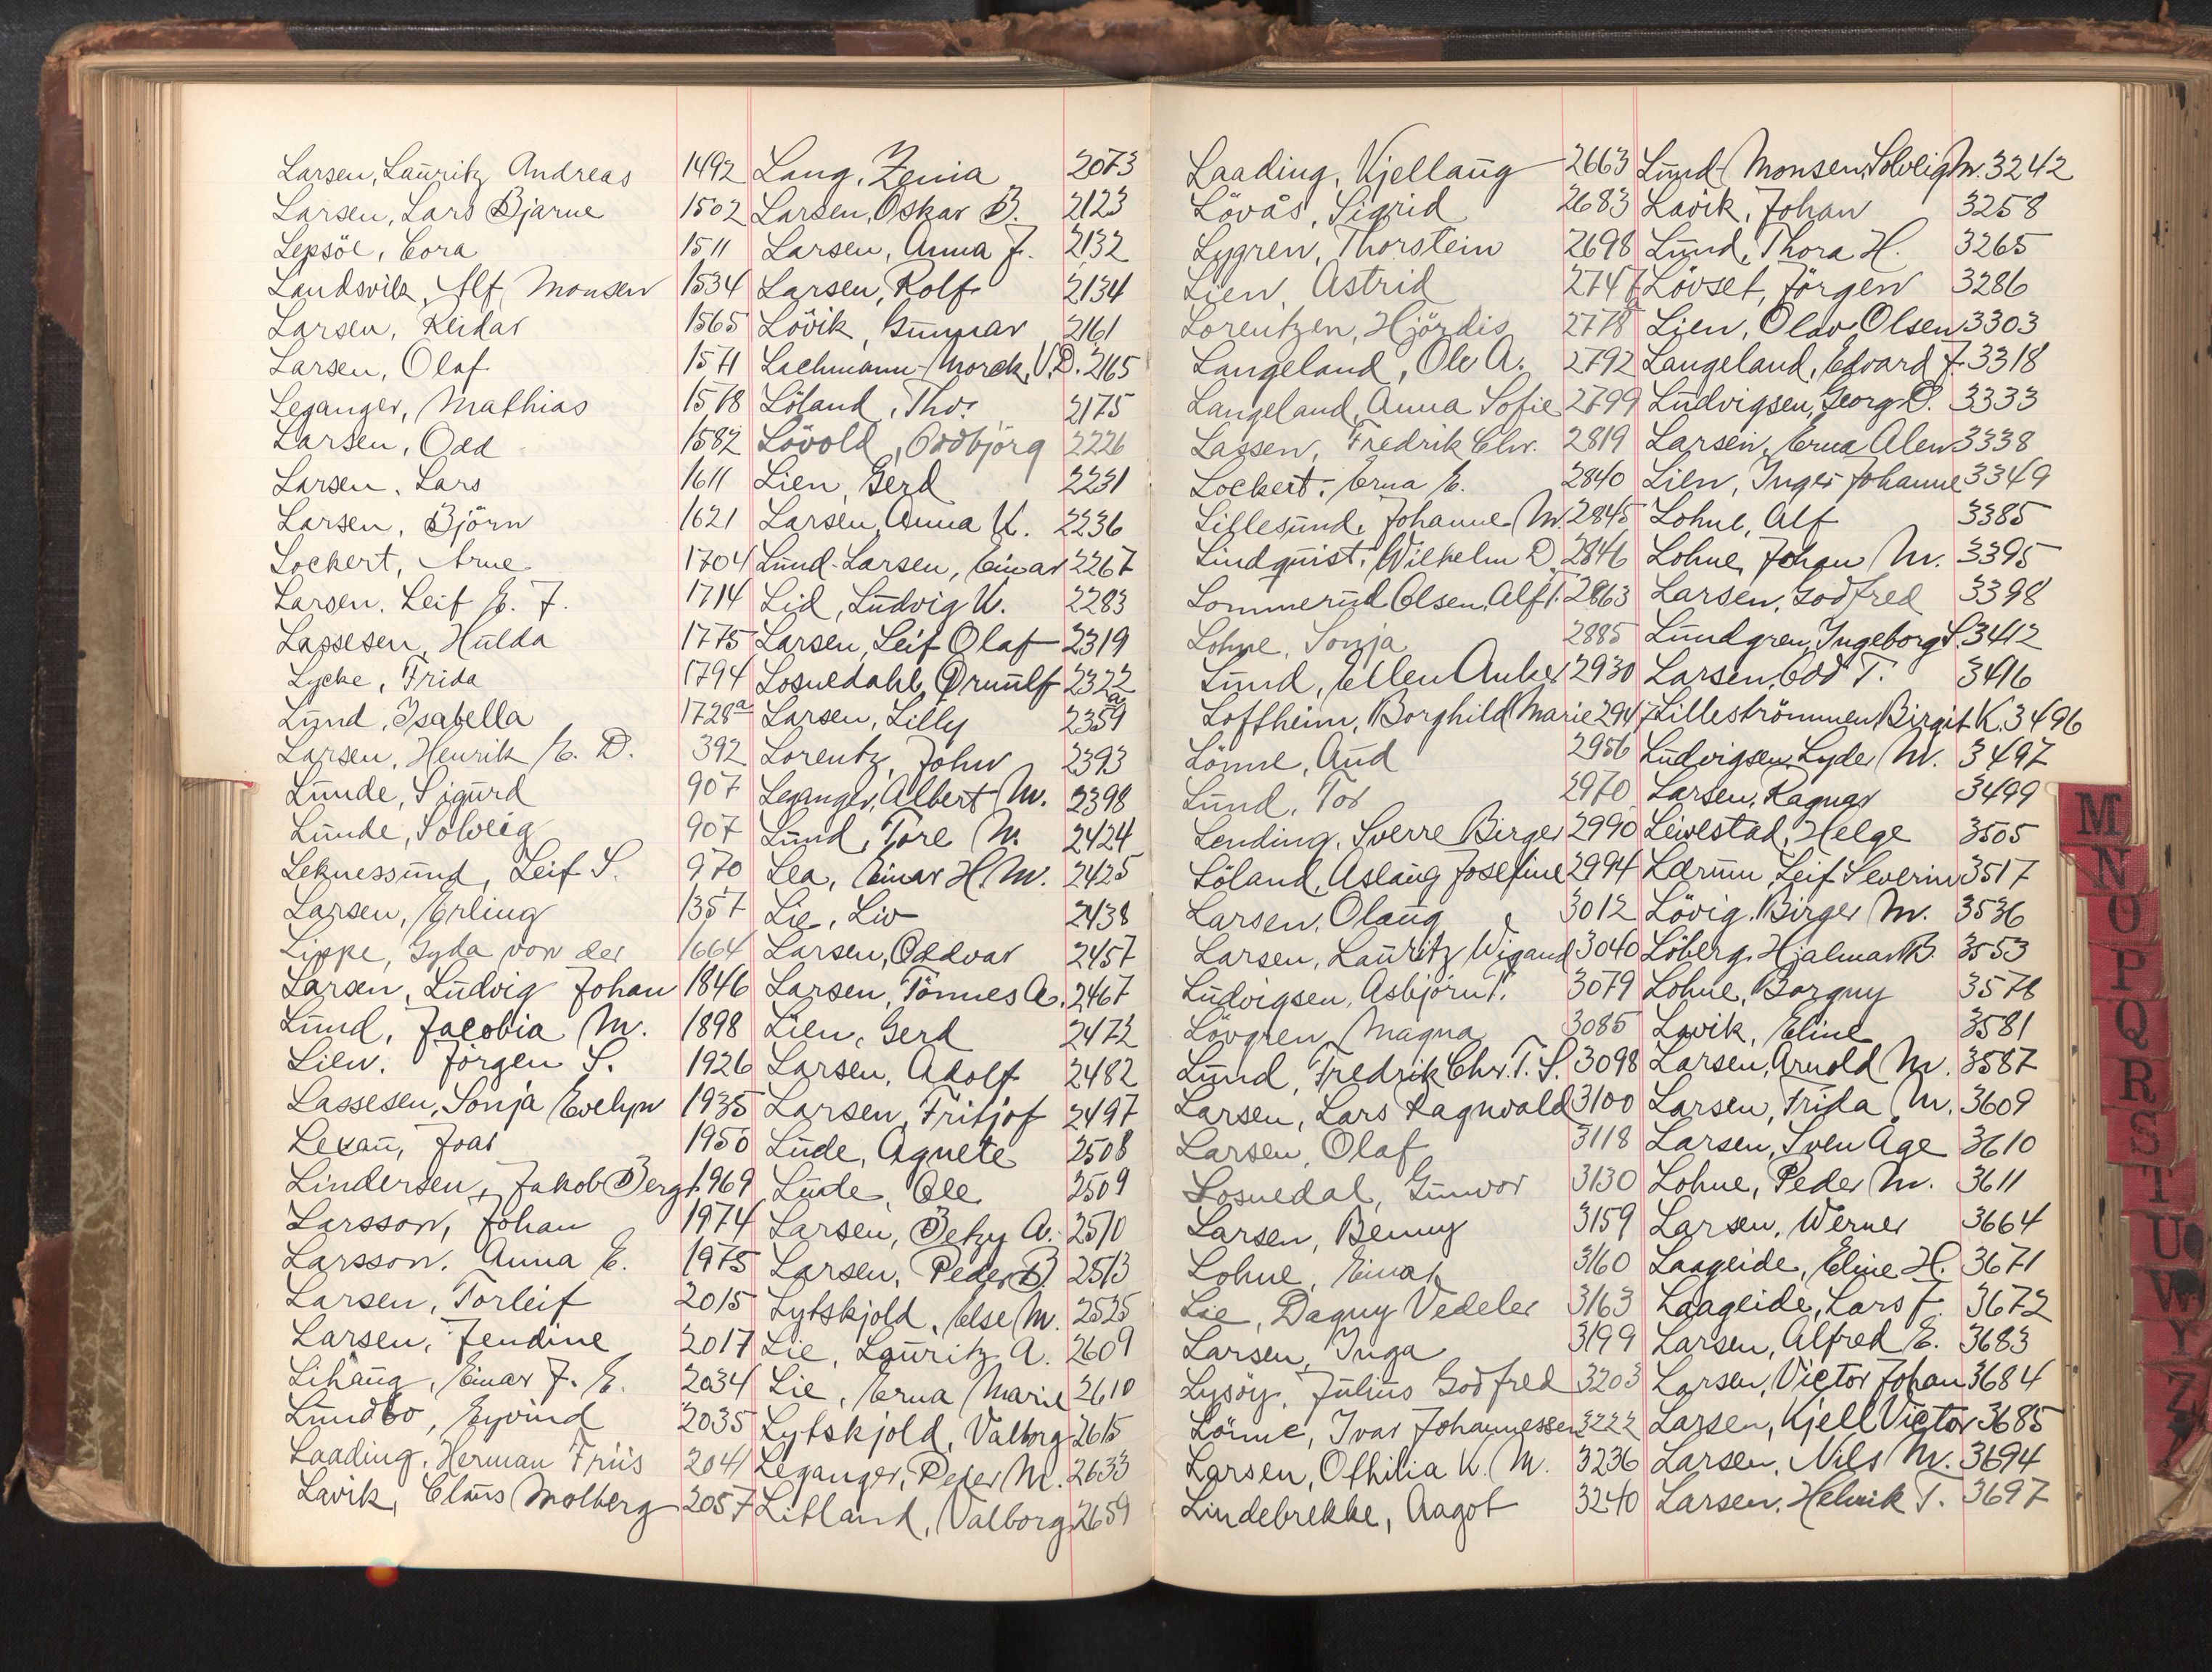 Larsen, Lauritz Andreas 1492
Larsen, Lars Bjarne 1502
Lepsöe, Cora 1511
Landsvik, Alf Monsen 1534
Larsen, Reidar 1565
Larsen, Olaf 1571
Leganger, Mathias 1578
Larsen, Odd 1582
Larsen, Lars 1611
Larsen, Björn 1621
Lockert, Arne 1704
Larsen, Leif E. F. 1714
Lassesen, Hulda 1775
Lycke, Frida 1794
Lund, Isabella 1728a
Larsen, Henrik E. D. 392
Lunde, Sigurd 907
Lunde, Solveig 907
Leknessund, Leif S. 970
Larsen, Erling 1357
Lippe, Gyda von der 1664
Larsen, Ludvig Johan 1846
Lund, Jacobia M. 1898
Lien, Jörgen S. 1926
Lassesen, Sonja Evelyn 1935
Lexau, Joar 1950
Lindersen, Jakob Bergt. 1969
Larsson, Johan 1974
Larsson, Anna E. 1975
Larsen, Torleif 2015
Larsen, Jendine 2017
Lihaug, Einar J. E. 2034
Lundbo, Eyvind 2035
Laading, Herman Friis 2041
Lavik, Claus Molberg 2057
Lang, Zenia 2073
Larsen, Oskar B. 2123
Larsen, Anna J. 2132
Larsen, Rolf 2134
Lövik, Gunnar 2161
Lachmann-Morck, V. D. 2165
Löland, Thv. 2175
Lövold, Oddbjörg 2226
Lien, Gerd 2231
Larsen, Anna K. 2236
Lund-Larsen, Einar 2267
Lid, Ludvig W. 2283
Larsen, Leif Olaf 2319
Losnedahl, Ørnulf 2322
Larsen, Lilly 2359a
Lorentz, John 2393
Leganger, Albert M. 2398
Lund, Tore M. 2424
Lea, Einar H. M. 2425
Lie, Liv 2438
Larsen, Oddvar 2457
Larsen, Tönnes A. 2467
Lien, Gerd 2472
Larsen, Adolf 2482
Larsen, Fritjof 2497
Lude, Agnete 2508
Lude, Ole 2509
Larsen, Betzy A. 2510
Larsen, Peder B. 2513
Lytskjold, Else M. 2525
Lie, Lauritz A. 2609
Lie, Erna Marie 2610
Lytskjold, Valborg 2615
Leganger, Peter M. 2633
Litland, Valborg 2659
Laading, Kjellaug 2663
Lövås, Sigrid 2683
Lygren, Thorstein 2698
Lien, Astrid 2747
Lorentzen, Hjördis 2778a
Langeland, Ole A. 2792
Langeland, Anna Sofie 2799
Lassen, Fredrik Chr. 2819
Lockert, Erna E. 2840
Lillesund, Johanne M. 2845
Lindquist, Wilhelm D. 2846
Lommerud Olsen, Alf T. 2863
Lohne, Sonja 2885
Lund, Ellen Anker 2930
Loftheim, Borghild Marie 2947
Lönne, Aud 2956
Lund, Tor 2970
Lending, Sverre Birger 2990
Löland, Aslaug Josefine 2994
Larsen, Olaug 3012
Larsen, Lauritz Wigand 3040
Ludvigsen, Asbjörn T. 3079
Lövgren, Magna 3085
Lund, Fredrik Chr. T. S. 3098
Larsen, Lars Ragnvald 3100
Larsen, Olaf 3118
Losnedal, Gunvor 3130
Larsen, Benny 3159
Lohne, Einar 3160
Lie, Dagny Vedeler 3163
Larsen, Inga 3199
Lysöy, Julius Godfred 3203
Lönne, Ivar Johannessen 3222
Larsen, Othilia K. M. 3236
Lindebrekke, Aagot 3240
Lund-Monsen, Solveig M. 3242
Lavik, Johan 3258
Lund, Thora H. 3265
Lövset, Jörgen 3286
Lien, Olav Olsen 3303
Langeland, Edvard J. 3318
Ludvigsen, Georg D. 3333
Larsen, Erna Alen 3338
Lien, Inger Johanne 3349
Lohne, Alf 3385
Lohne, Johan M. 3395
Larsen, Godfred 3398
Lundgren, Ingeborg S. 3412
Larsen, Odd T. 3416
Lilleströmmen, Birgit K. 3496
Ludvigsen, Lyder M. 3497
Larsen, Ragnar 3499
Leivestad, Helge 3505
Lærum, Leif Severin 3517
Lövig, Birger M. 3536
Löberg, Hjalmar B. 3553
Lohne, Borgny 3578
Lavik, Eline 3581
Larsen, Arnold M. 3587
Larsen, Frida M. 3609
Larsen, Sven Åge 3610
Lohne, Peder M. 3611
Larsen, Werner 3664
Laageide, Eline H. 3671
Laageide, Lars J. 3672
Larsen, Alfred E. 3683
Larsen, Victor Johan 3684
Larsen, Kjell Victor 3685
Larsen, Nils M. 3694
Larsen, Helmik T. 3697
M
N
O
P
Q
R
S
T
U
W
Y
Z